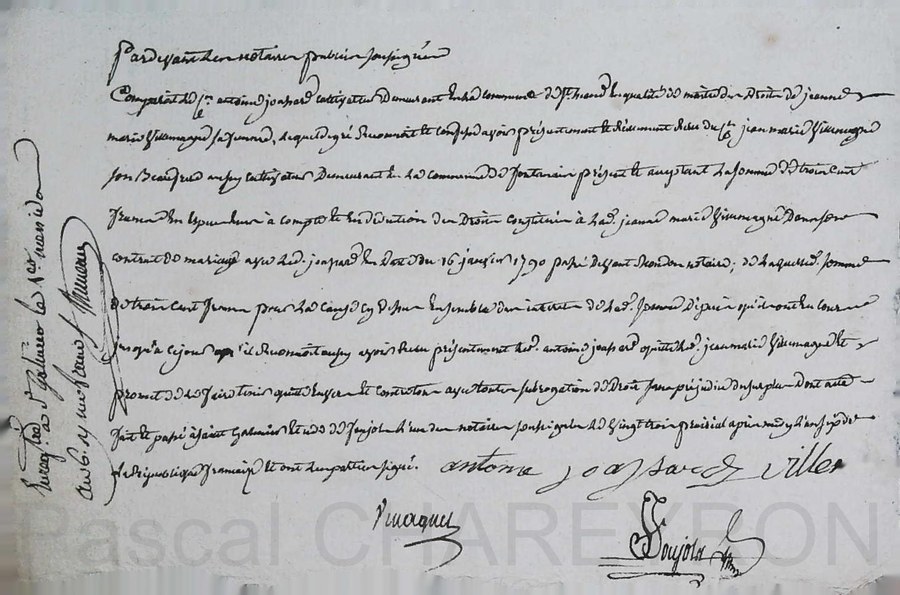 Pardevant les notaires publics soussignés
Comparait le c.en antoine joassard cultivateur demeurant en la commune de st. heand en qualité de maitre des Droits de jeanne
marie Villemagne sa femme, lequel de gré Reconnoit et confesse avoir présentement et Réellement Reçu du c.en jean marie Villemagne
son Beaufrere aussy cultivateur Demeurant en la commune de fontanès présent et acceptant La somme de trois cent
francs En espece à compte et en déduction des Droits constitués à Lad. jeanne marie Villemagne Dans son
contrat de mariage avec led. joassard en Date du 16 janvier 1790 passé devant notaire; de Laquelle somme
de trois cent francs pour La cause cy dessus Ensemble des interets de lad. somme qui ont eu cours
jusqu'à ce jour qu'il Reconnoit aussy avoir Reçu présentement led. antoine joassard quitte led. jean marie Villemagne et
promet de le faire tenir quitte Envers et contre tous avec toute subrogation de Droit sans préjudice du surplus Dont acte
fait et passé à saint Galmier Etude de Poujola L'un des notaires soussignés Le Vingt trois prairial après midy L'an six de
la République française et ont les parties signé. antoine joassard Viller
Vmagne
Poujola
Enreg.tré à st Galmier le
an 6. Reçu francs